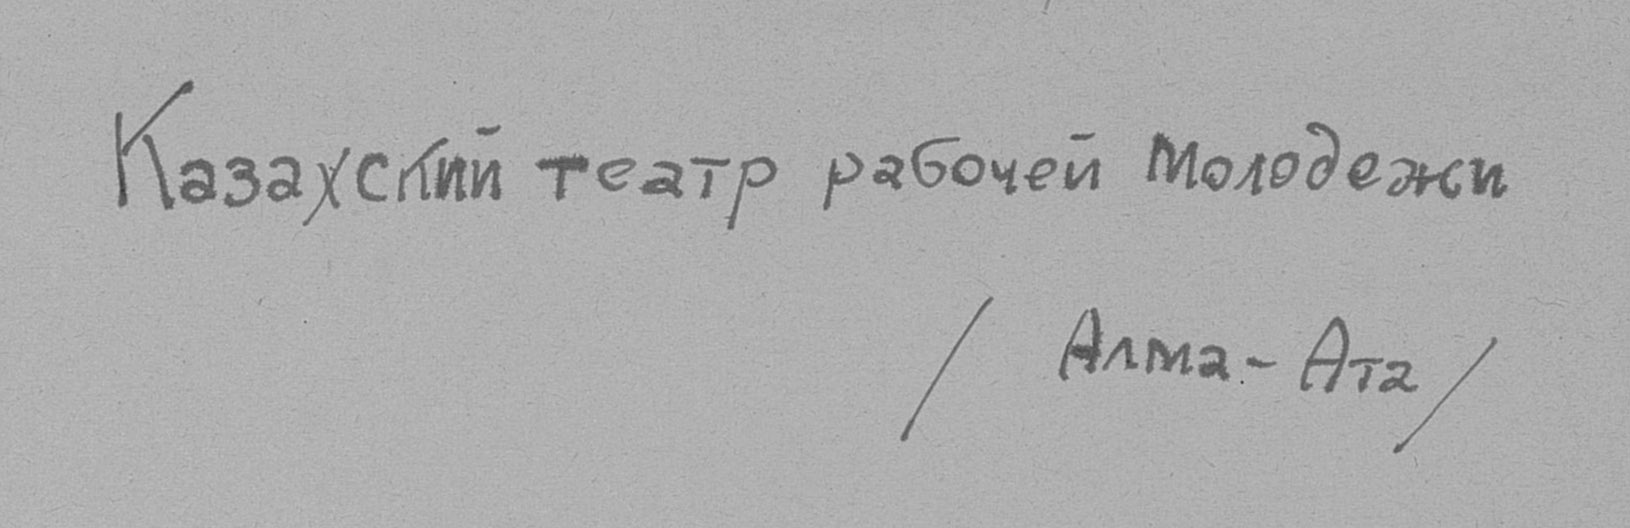 Казахский театр рабочей молодежи
/ Алма-Ата /